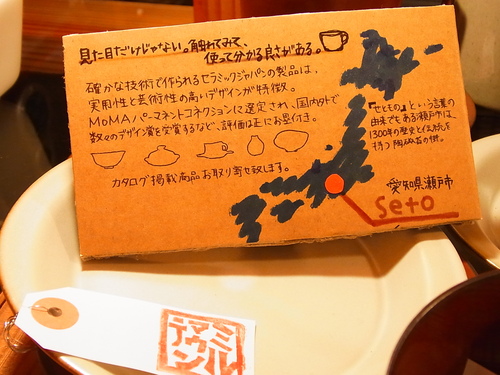 見た目だけじゃない。触れてみて、
使って分かる良さがある。
確かな技術で作られるセラミックジャパンの製品は、
実用性と芸術性の高いデザインが特徴。
MoMAパーマネントコネクションに選定され、国内外で
数々のデザイン賞を受賞するなど、評価は正にお墨付き。
カタログ掲載商品お取り寄せ致します。
『せともの』という言葉の
由来でもある瀬戸市は、
1300年の歴史と伝統を
持つ陶磁器の街。
愛知県瀬戸市
Seto
ミル
マウ
デン